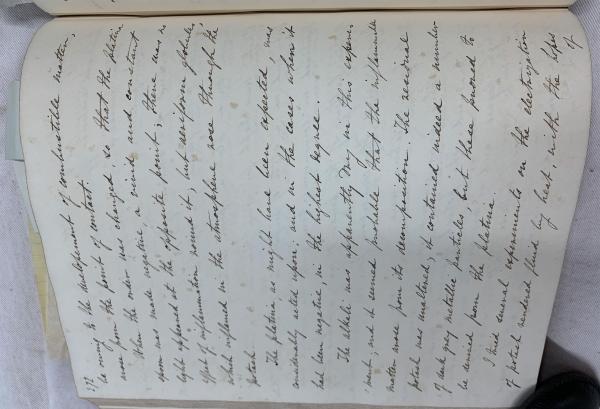 272
be owing to the development of combustible matter,
arose from the point of contact.
When the order was changed so that the platina
spoon was made negative, a vivid and constant
light appeared at the opposite point; there was no
effect of inflammation round it; but aeriform globules,
which inflamed in the atmosphere rose through the
potash.
The platina as might have been expected, was
considerably acted upon: and in the cases when it
had been negative, in the highest degree.
The alkali was apparently dry in this experi-
ment; and it seemed probable that the inflammable
matter arose from its decomposition. The residual
potash was unaltered; it contained indeed a number
of dark grey metallic particles, but these proved to
be derived from the platina.
I tried several experiments on the electrization
of potash rendered fluid by heat, with the hopes
of